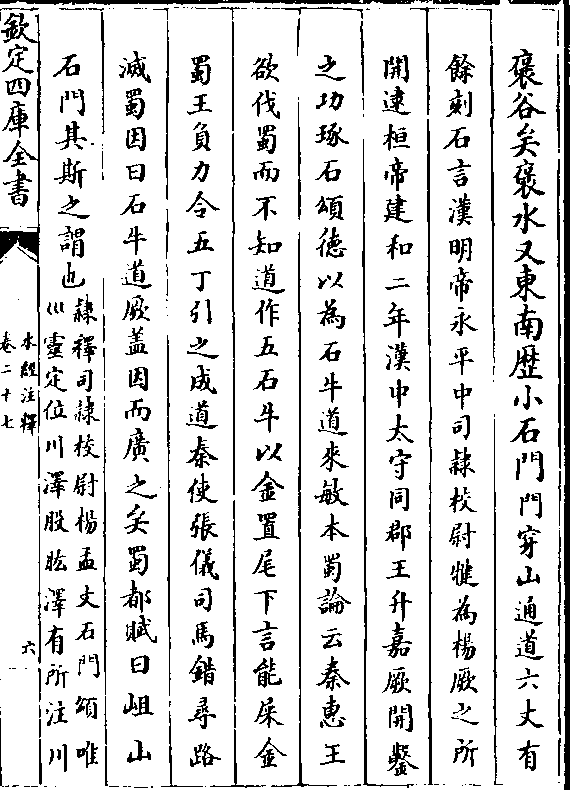 褒谷矣褒水又東南歴小石門門穿山通道六丈有
餘刻石言漢明帝永平中司隷校尉犍為楊厥之所
開逮桓帝建和二年漢中太守同郡王升嘉厥開鑿
之功琢石頌徳以為石牛道來敏本蜀論云秦惠王
欲伐蜀而不知道作五石牛以金置尾下言能屎金
蜀王負力令五丁引之成道秦使張儀司馬錯尋路
滅蜀因曰石牛道厥蓋因而廣之矣蜀都賦曰岨山
石門其斯之謂也
隷釋司隷校尉楊孟文石門頌唯
巛靈定位川澤股肱澤有所注川
欽定四庫全書
水經注釋
卷二十七
六